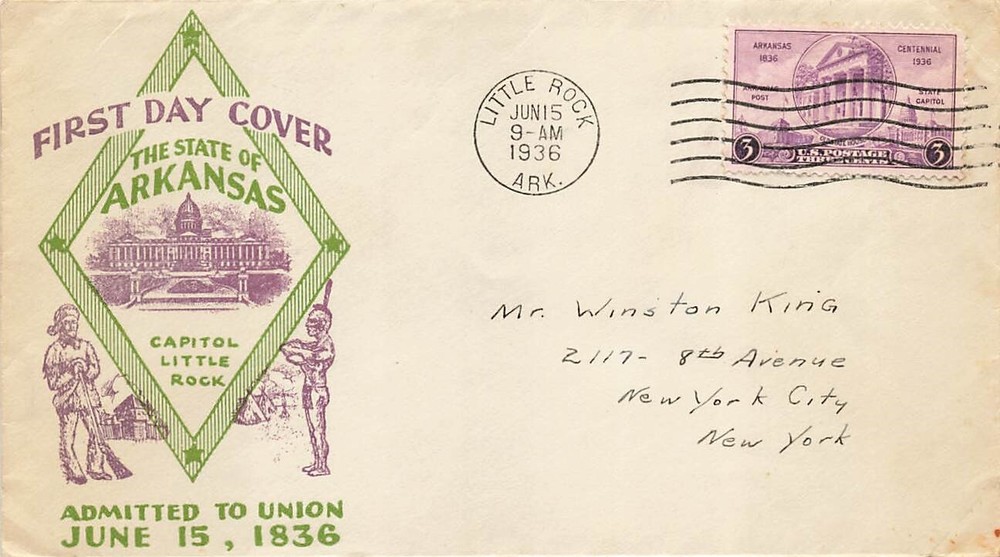 FIRST DAY COVER
THE STATE OF
ARKANSAS
CAPITOL
LITTLE
ROCK
ADMITTED TO UNION
JUNE 15, 1836
LITTLE ROCK
JUN 15
9-AM
1936
ARK.
ARKANSAS
1836
CENTENNIAL
1936
ARKANSAS
POST
STATE
CAPITOL
3
U.S. POSTAGE
THREE CENTS
3
Mr. Winston King
2117- 8th Avenue
New York City
New York